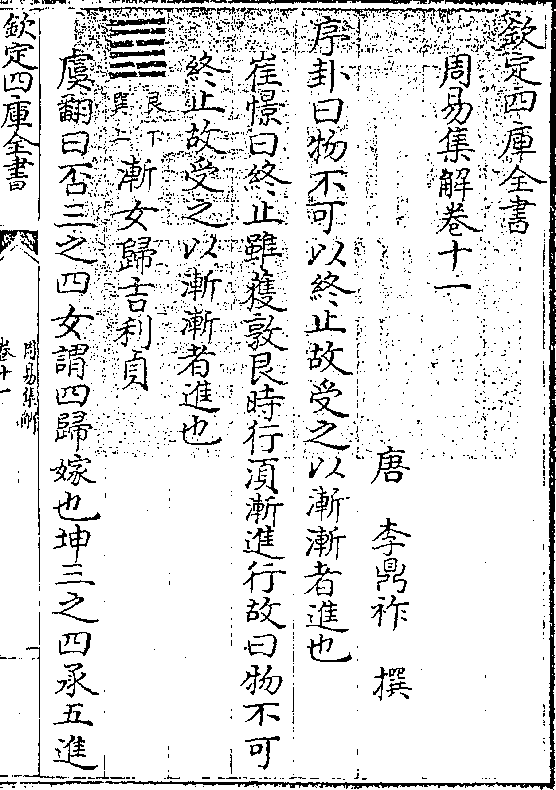 欽定四庫全書
周易集解卷十一
唐 李鼎祚 撰
序卦曰物不可以終止故受之以漸漸者進也
崔憬曰終止雖獲敦艮時行須漸進行故曰物不可
終止故受之以漸漸者進也
艮下
巽上
漸女歸吉利貞
虞翻曰否三之四女謂四歸嫁也坤三之四承五進
欽定四庫全書
周易集解
卷十一
一